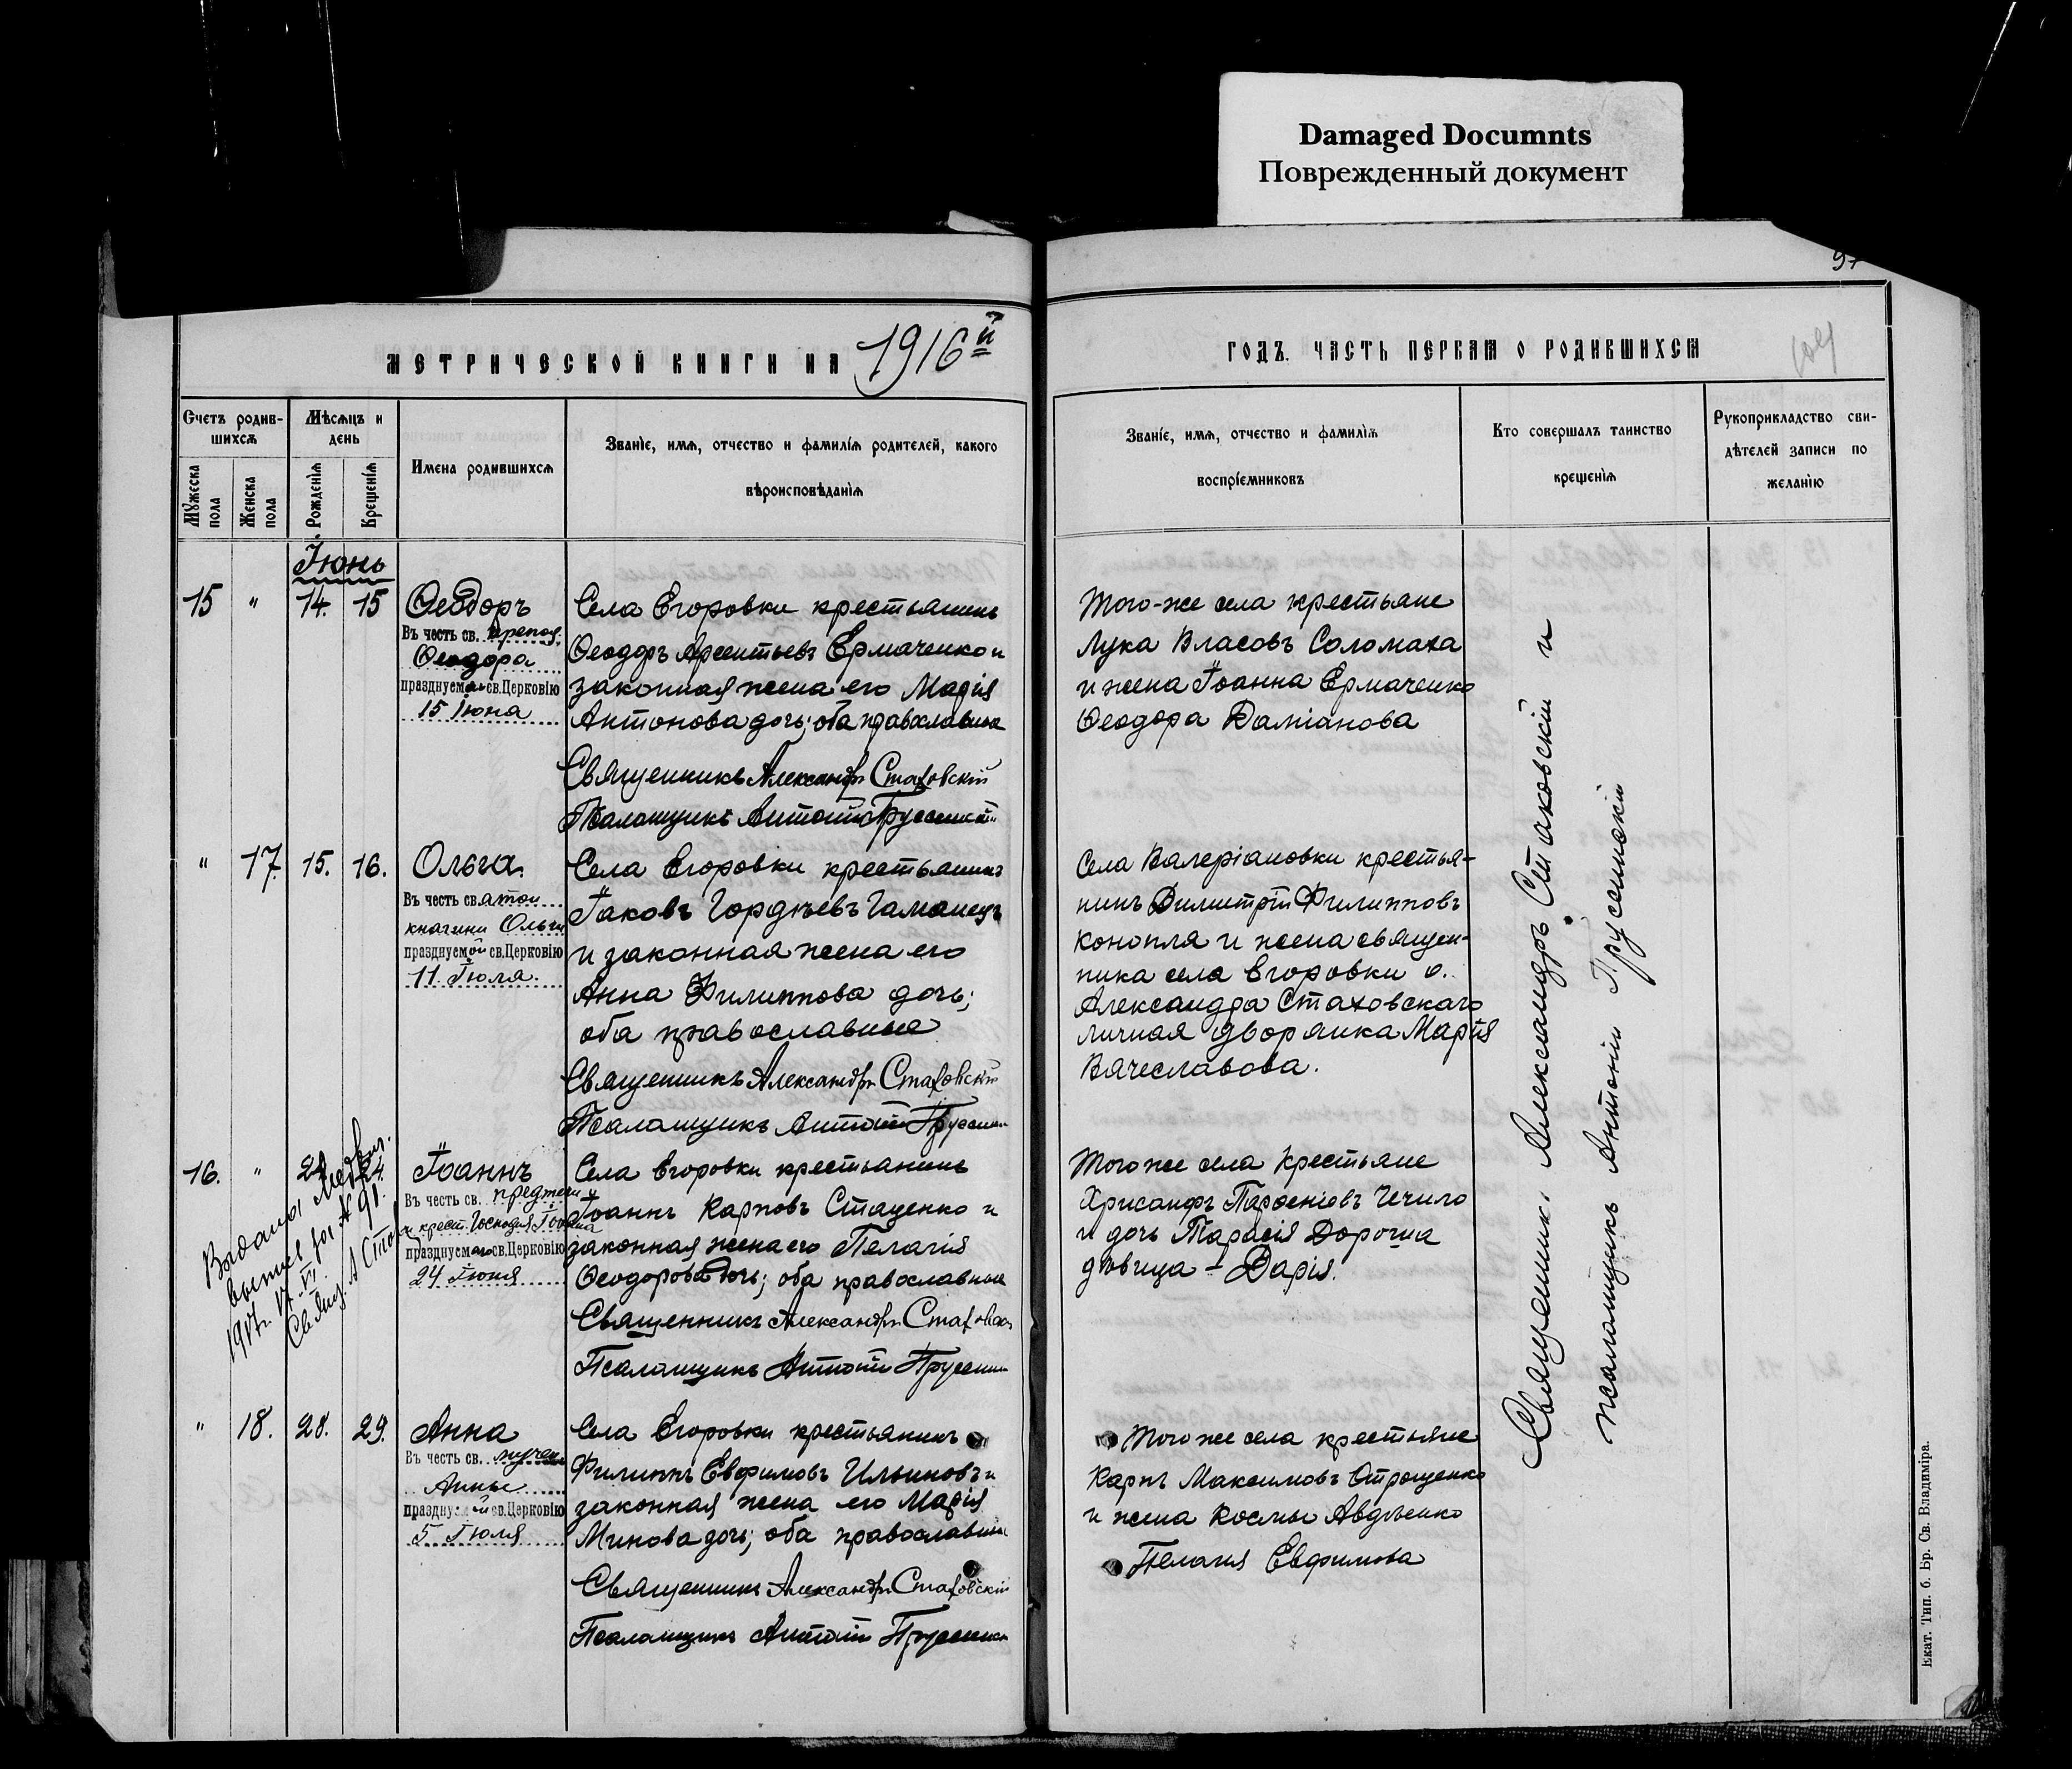 Damaged Documnts
Поврежденный документ
МЕТРИЧЕСКОЙ КНИГИ НА 1916й
ГОДЪ. ЧАСТЬ ПЕРВАЯ О РОДИВШИХСЯ
Счетъ родив-
шихся
Мужеска
пола
Женска
пола
Мѣсяцъ и
день
Рожденія
Крещенія
Имена родившихся
Званіе, имя, отчество и фамилія родителей, какого
вѣроисповѣданія
Званіе, имя, отчество и фамилія
воспріемниковъ
Кто совершалъ таинство
крещенія
Рукоприкладство сви-
дѣтелей записи по
желанію
Іюнь
15 " 14. 15
Ѳеодоръ
Въ честь св. препод.
Ѳеодора
празднуемаго св.Церковію
15 Іюня
Села Егоровки крестьянинъ
Ѳеодоръ Арсентьевъ Ермаченко и
законная жена его Марія
Антонова дочь; оба православные
Священникъ Александръ Стаховскій
Псаломщикъ Антоній
Того-же села крестьяне
Лука Власовъ Соломаха
и жена Іоанна Ермаченко
Ѳеодора Даміанова
" 17. 15. 16.
Ольга.
Въ честь святой
княгини Ольги
празднуемой св.Церковію
11. Іюля.
Села Егоровки крестьянинъ
Іаковъ Гордѣевъ Гаманецъ
и законная жена его
Анна Филиппова дочь;
оба православные
Священникъ Александръ Стаховскій
Псаломщикъ Антоній
Села Валеріановки крестья-
нинъ Димитрій Филипповъ
Конопля и жена священ-
ника села Егоровки о.
Александра Стаховскаго
личная дворянка Марія
Вячеславова.
16. " 24. 24.
Іоаннъ
Въ честь св. предтечи
и крест. Господня Іоанна
празднуемаго св.Церковію
24 Іюня
Села Егоровки крестьянинъ
Іоаннъ Карповъ Стаценко и
законная жена его Пелагія
Ѳеодорова дочь; оба православные
Священникъ Александръ
Псаломщикъ Антоній
Того же села крестьяне
Хрисанфъ Парѳеніевъ Чечило
и дочь Тарасія Дороша
дѣвица - Дарія.
Выдана
выпись за № 91.
1917г. VI
Свящ. А
" 18. 28. 29.
Анна
Въ честь св. мучен.
Анны
празднуемой св.Церковію
5 Іюля
Села Егоровки крестьянинъ
Филиппъ Евфимовъ Ильиновъ и
законная жена его Марія
Минова дочь; оба православные
Священникъ Александръ Стаховскій
Псаломщикъ Антоній
Того же села крестьяне
Карпъ Максимовъ Отрощенко
и жена Космы Авдѣенко
Пелагія Евфимова
Священникъ Александръ Стаховскій и
псаломщикъ Антоній
Екат. Тип. б. Бр. Св. Владиміра.